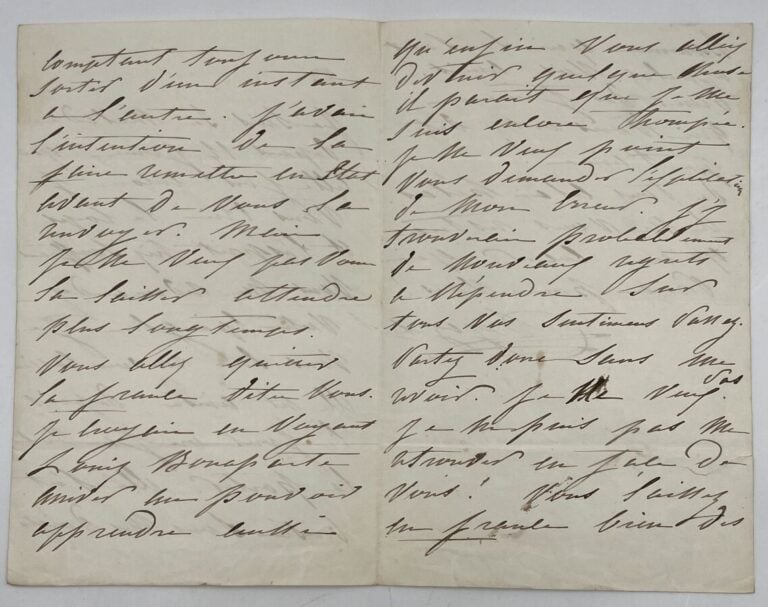 comptant toujours
sortir d'un instant
a l'autre. j'avais
l'intention de la
faire remettre en Etat
avant de vous la
envoyer. Mais
je ne veux pas vous
la laisser attendre
plus longtemps.
Vous allez quitter
la france dites vous.
je croyais en voyant
Louis Bonaparte
arriver au pouvoir
apprendre aussi
qu'enfin vous alliez
devenir quelque chose
il parait que je me
suis encore trompée.
je ne veux point
vous demander l'explication
de mon Erreur. j'y
trouverais probablement
de nouveaux regrets
a répendre sur
tous vos sentimens passez.
Partez donc sans me
revoir. je ne veux pas.
je ne puis pas me
retrouver en face de
vous! Vous laissez
en france bien des